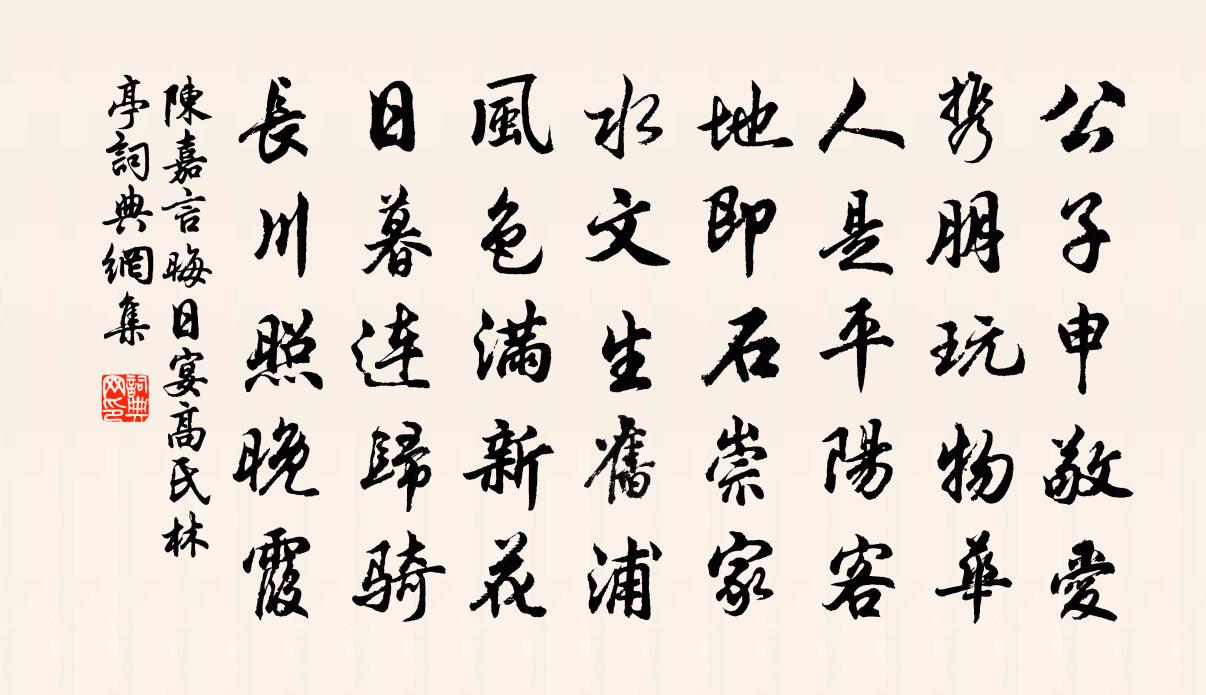 公子申敬愛
携朋玩物華
人是平陽客
地即石崇家
水文生舊浦
風色滿新花
日暮連歸騎
長川照晚霞
陳嘉言晦日宴高氏林
亭詞典網集
詞典
网印